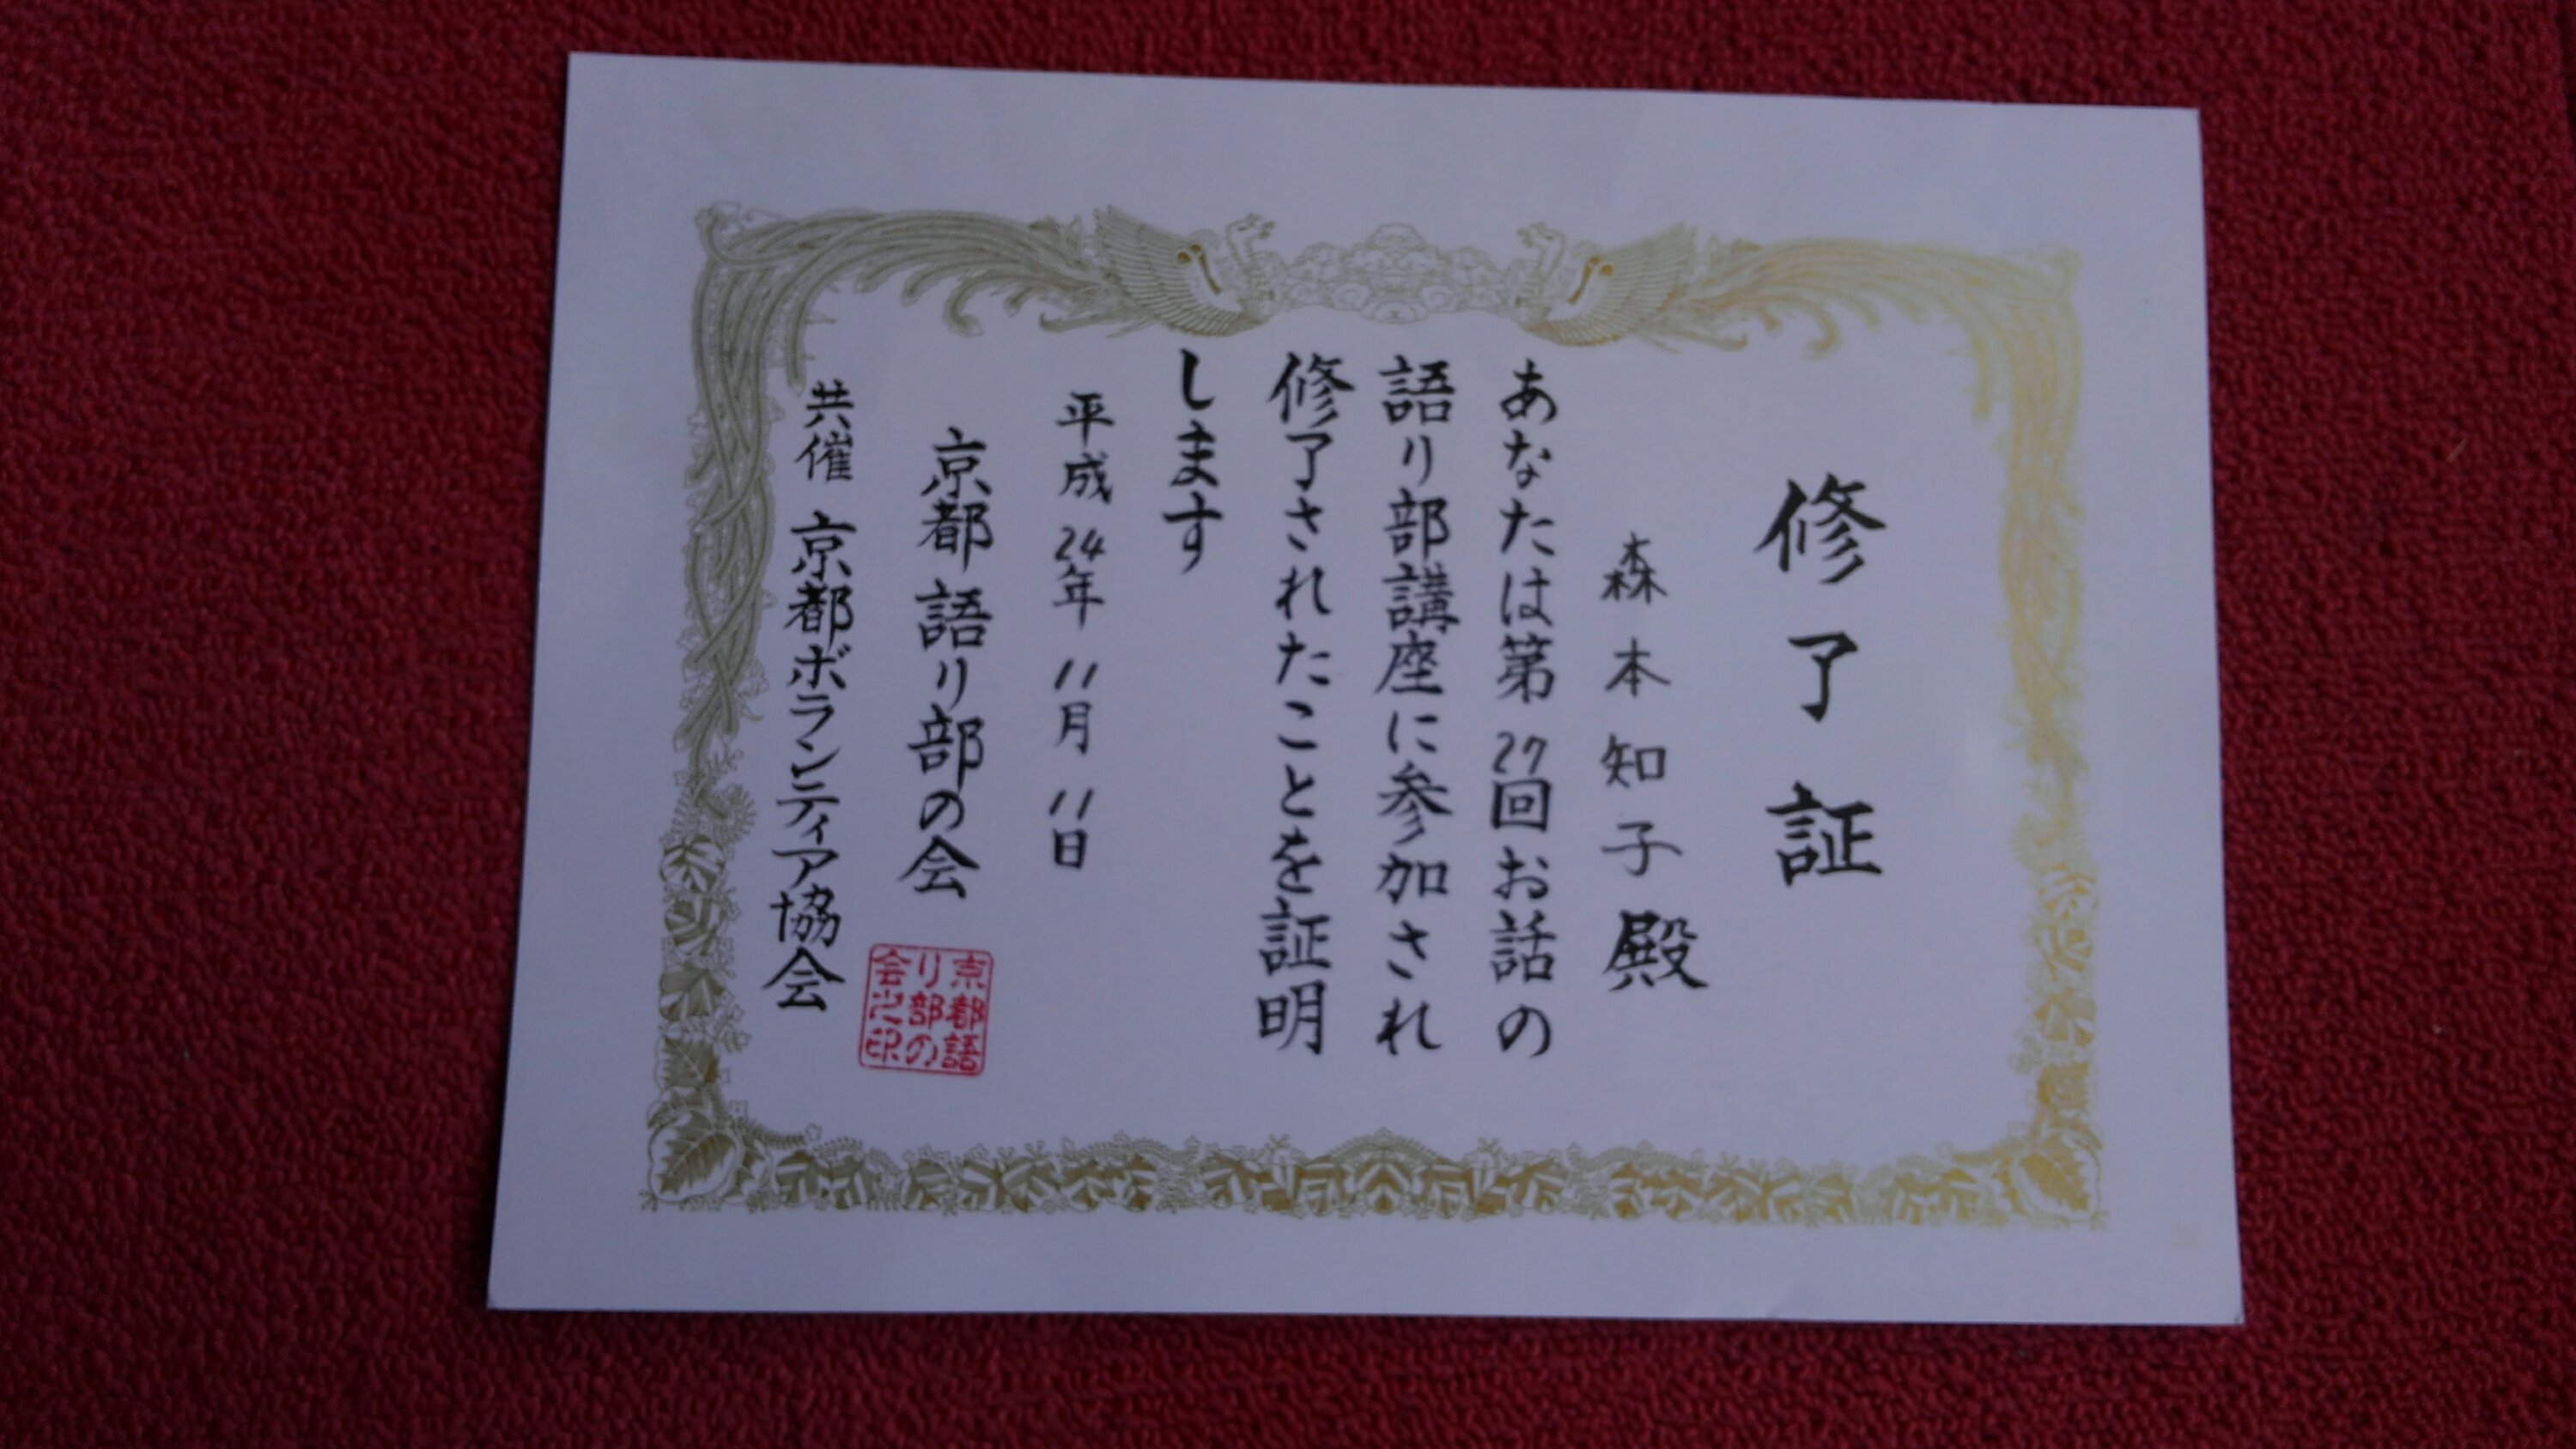 修了証
森本知子殿
あなたは第27回お話の
語り部講座に参加され
修了されたことを証明
します
平成24年11月11日
京都語り部の会
共催 京都ボランティア協会
京都語
り部の
会之印